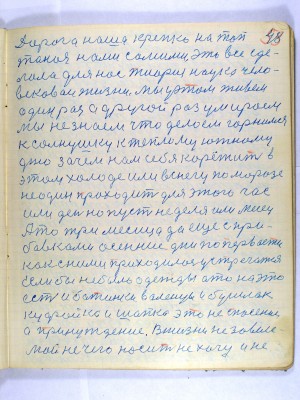 58
Дорога наша крепко на топ
такая нами самими, это все сде-
лала для нас теария наука чело-
вековой жизни. Мы этом живем
один раз а другой раз умираем
мы не знаем что делаем горнимся
к солнушку к теплому южному
дню зачем нам себя корежить в
этом холоде или в снегу по морозе
не один приходит для этого час
или ден но пуст неделя или месец
А то три месица да еще с при-
бавками осенние дни по первости
как с ними приходилос устречатся
если бы не было одежды а то на это
ест и ботинки валенци и бушлак
кудрайка и шапка это не спасение
а принуждение. В жизни не завися
мой не чего носит не хочу и не